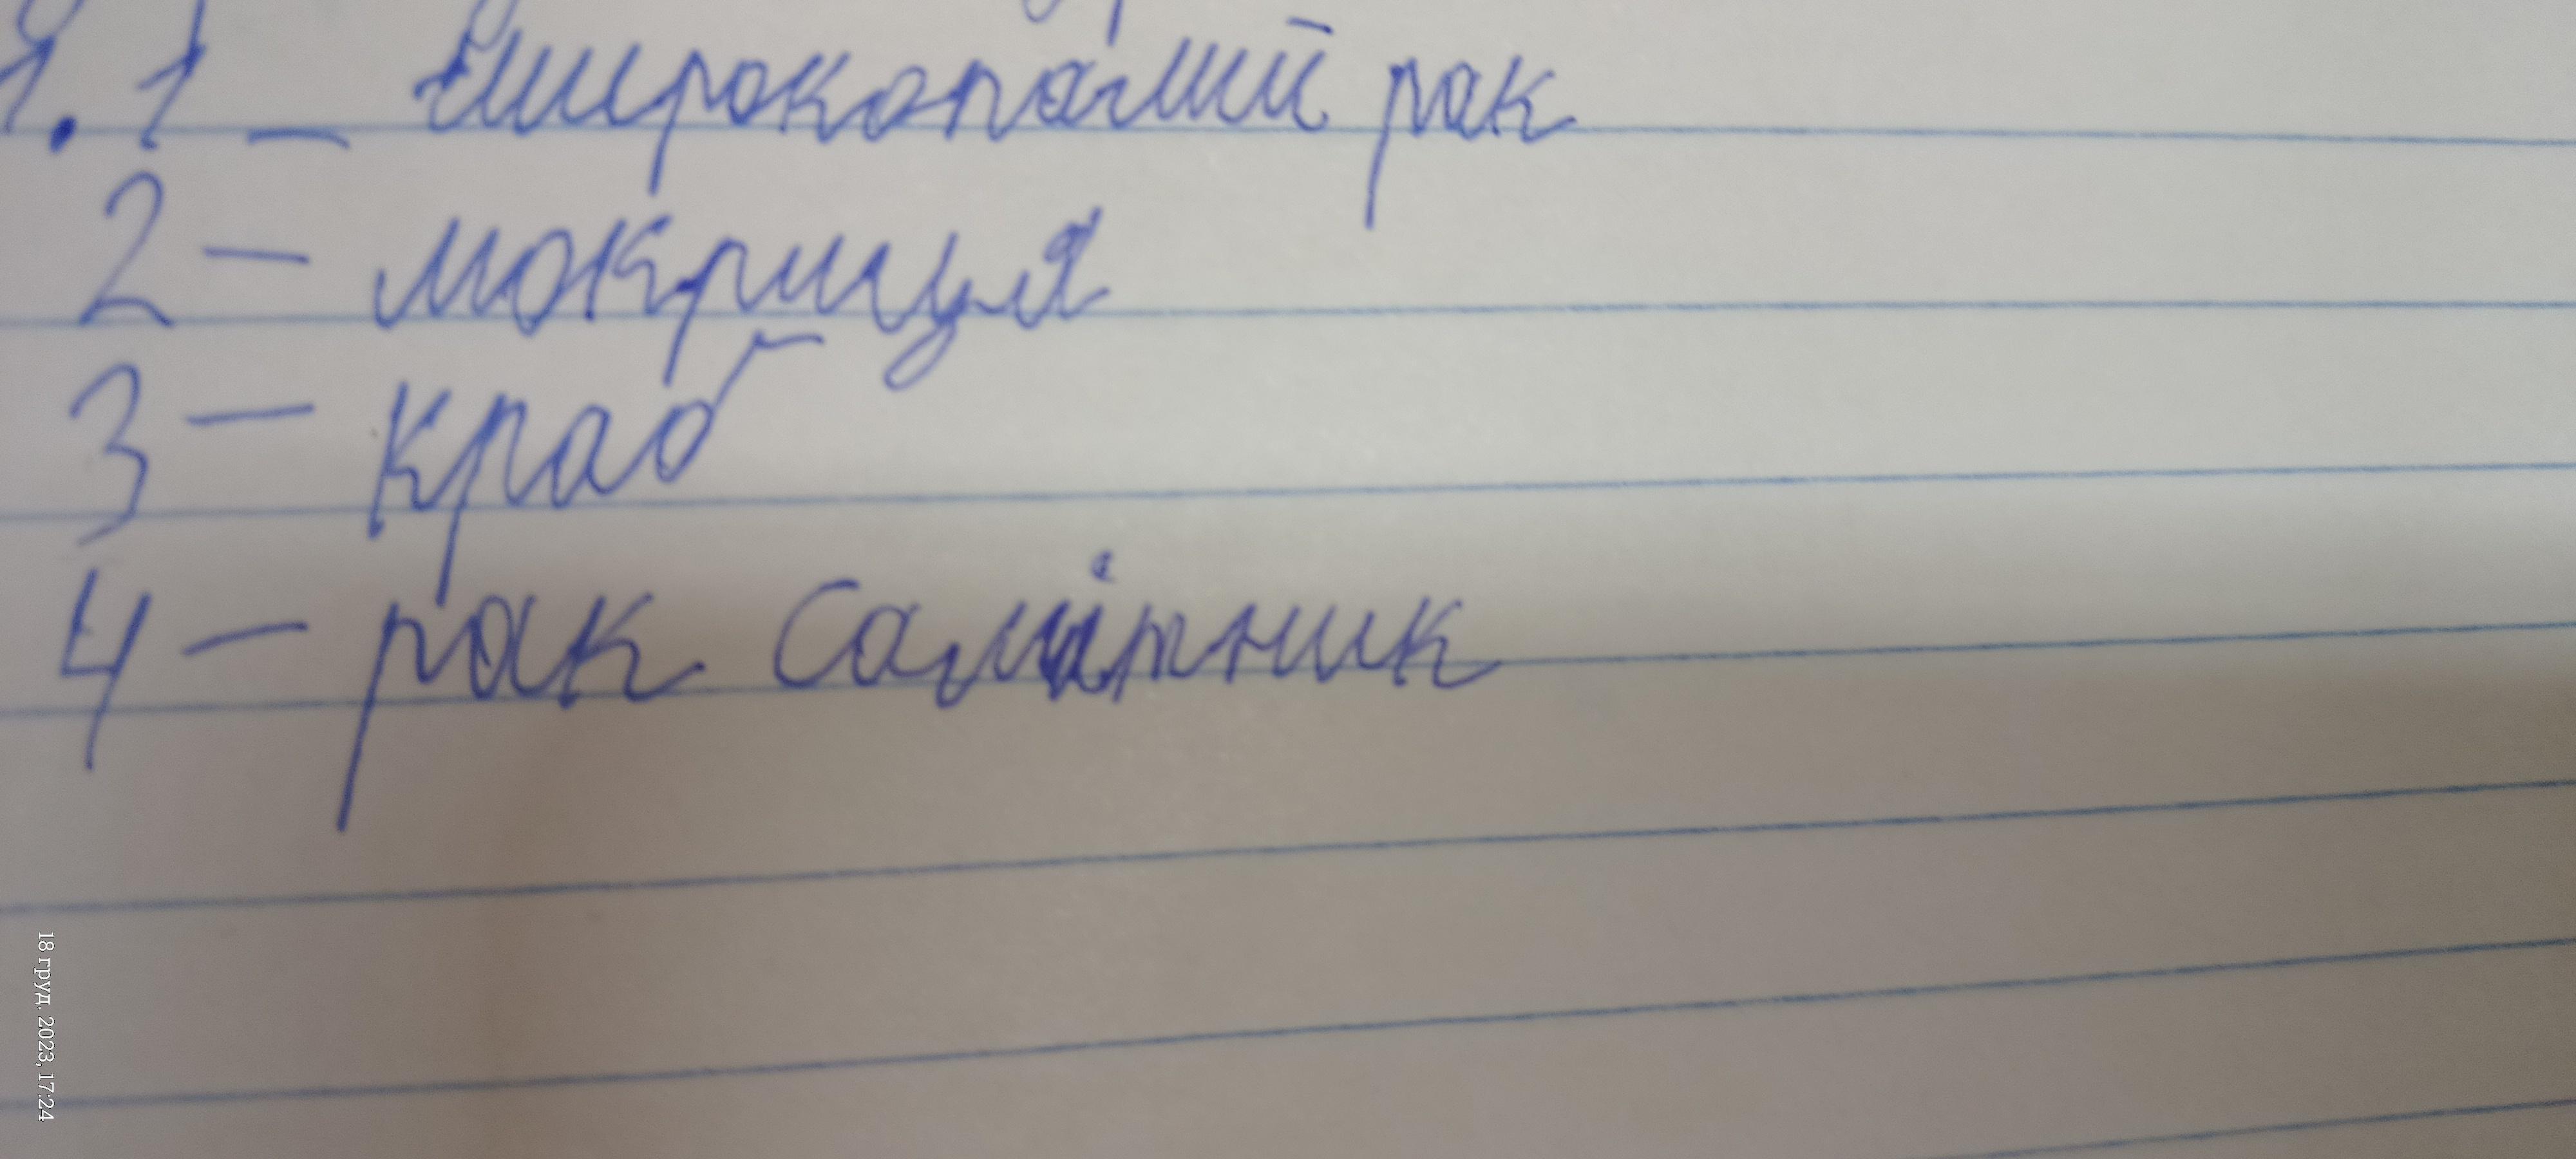 1.1 – широкопалий рак
2 – мокриця
3 – краб
4 – рак самітник
18 груд. 2023, 17:24